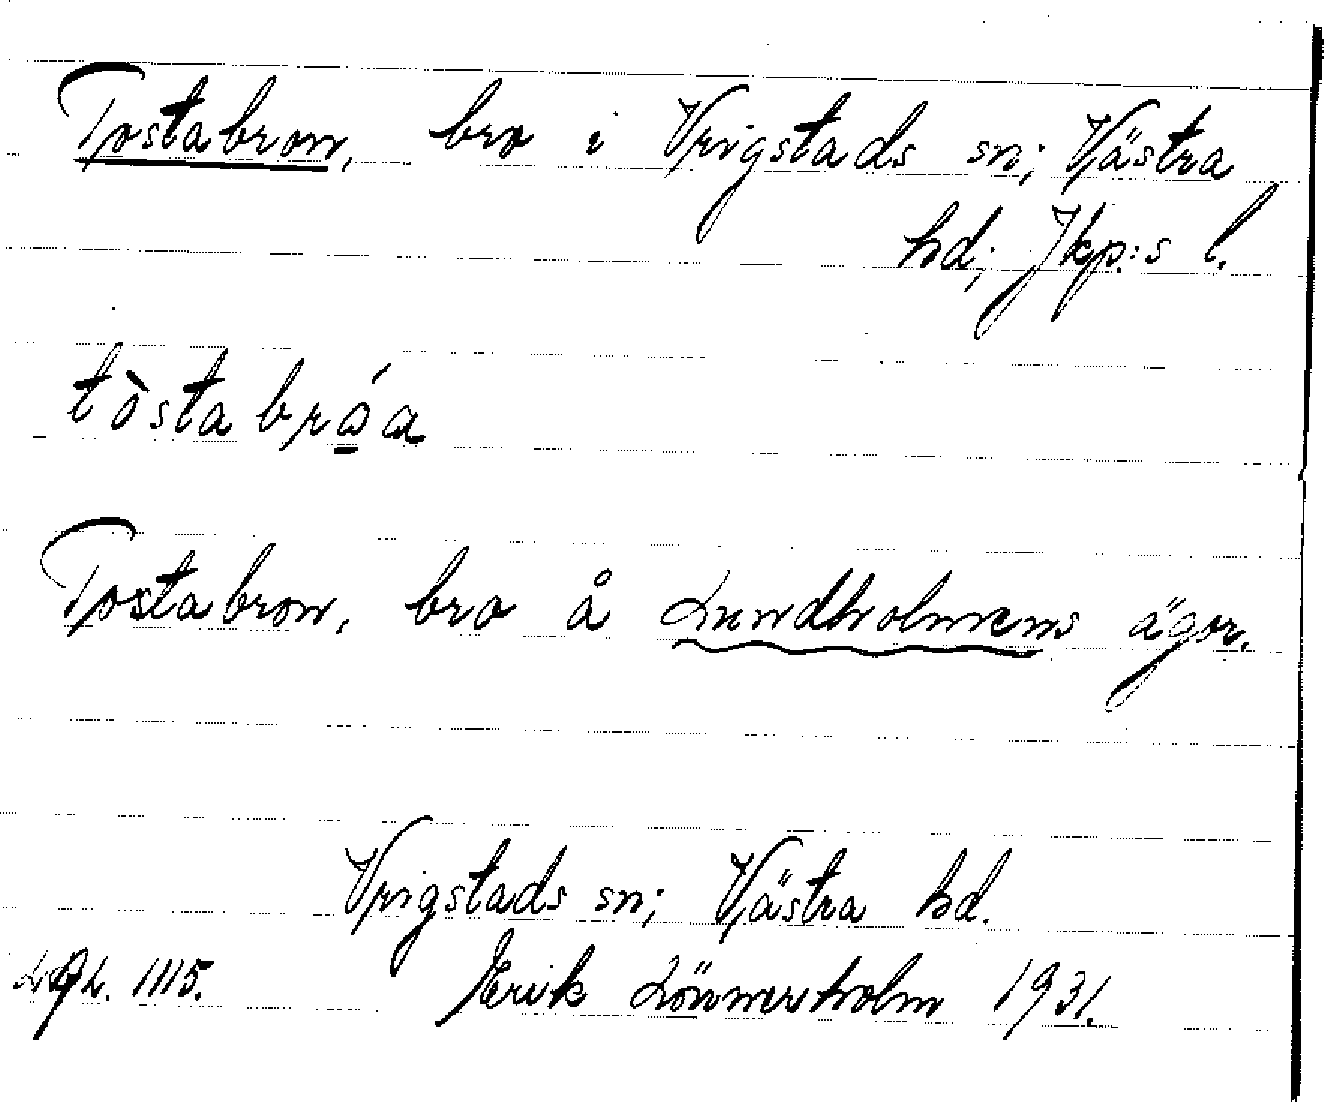 Tostabron, bro i Vrigstads sn; Västra
hd; Jkp:s l.
tòstabróa
Tostabron, bro å Lundholmens ägor.
Vrigstads sn; Västra hd.
1115. Erik Lönnerholm 1931.